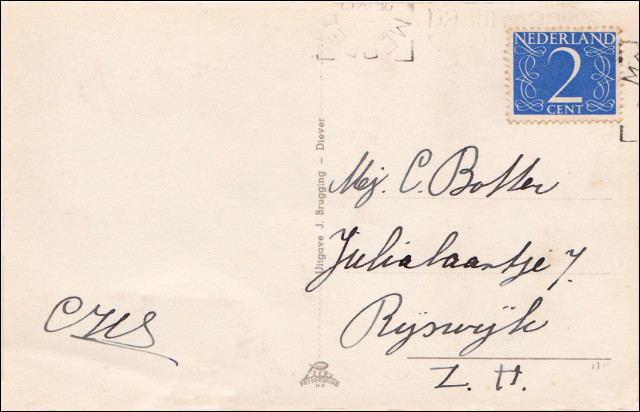 NEDERLAND
2
CENT
Uitgave J. Brugging – Diever
Mej. C. Botter
Julialaantje 7.
Rijswijk
Z. H.